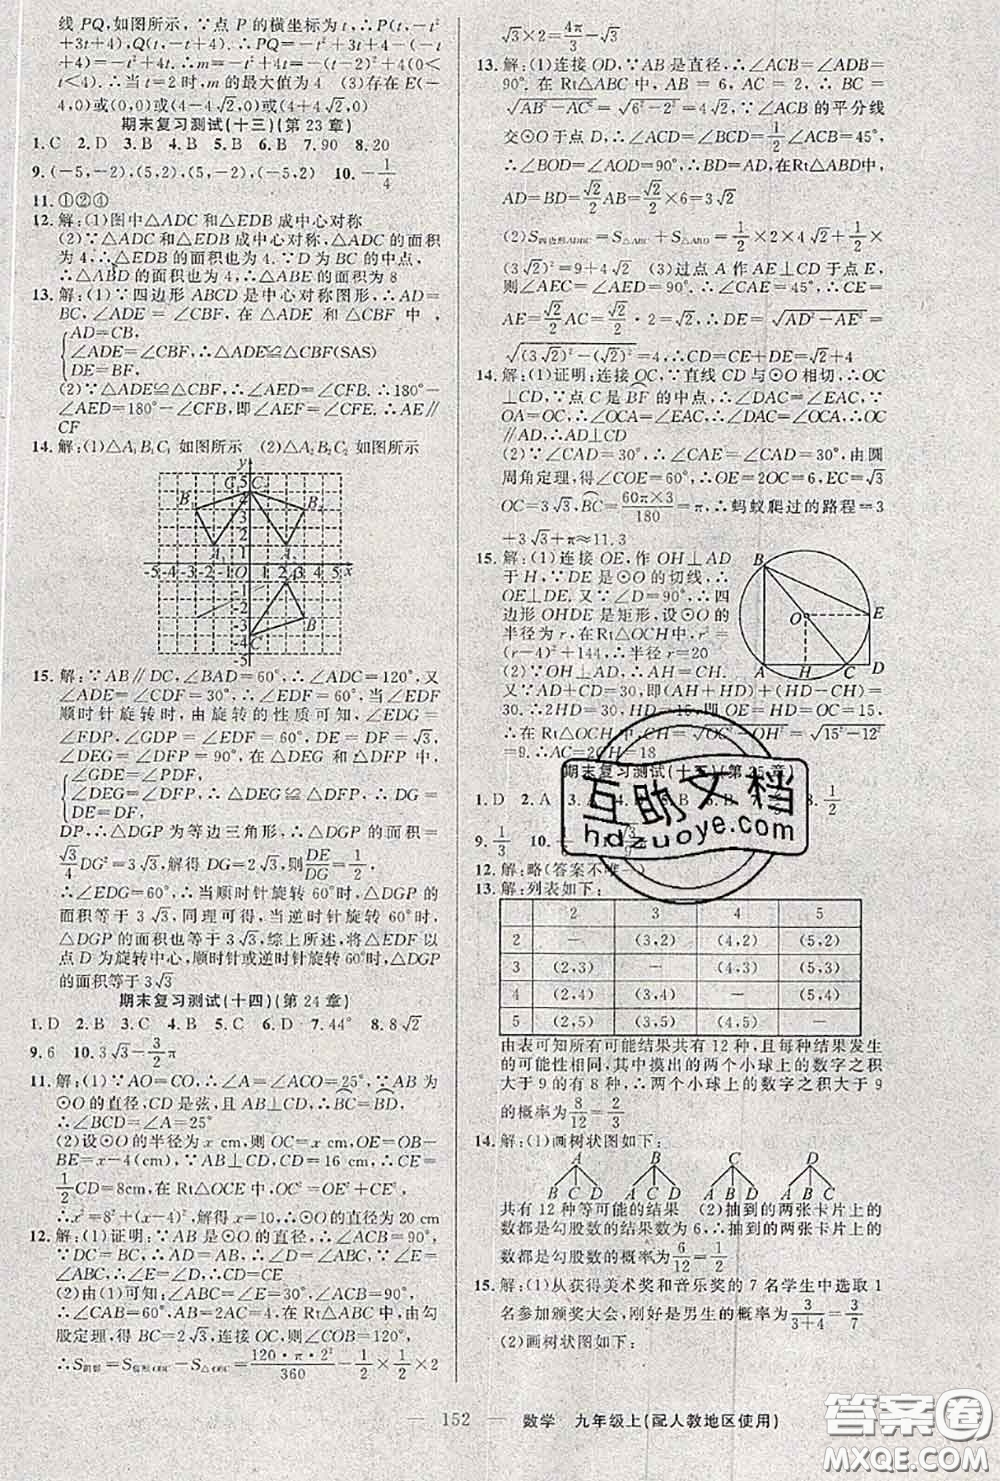 线PQ,如图所示,∵点P的横坐标为t,∴P(t,-t²
+3t+4),Q(t,-t+4).∴PQ=-t²+3t+4-(-t+
4)=-t²+4t.∴m=-t²+4t=-(t-2)²+4(0<
t<4).∴当t=2时,m的最大值为4 (3)存在E(-
4,0)或(0,0)或(4-4√2,0)或(4+4√2,0)
期末复习测试(十三)(第23章)
1.C 2.D 3.B 4.B 5.B 6.B 7.90 8.20
9.(-5,-2),(5,-2),(5,2) 10.-1/4
11.①②④
12.解:(1)图中△ADC和△EDB成中心对称
(2)∵△ADC和△EDB成中心对称,△ADC的面积
为4,∴△EDB的面积也为4,∵D为BC的中点,
∴△ABD的面积也为4,∴△ABE的面积为8
13.解:(1)∵四边形ABCD是中心对称图形,∴AD=
BC,∠ADE=∠CBF,在△ADE和△CBF中,
AD=CB,
∠ADE=∠CBF,∴△ADE≌△CBF(SAS)
DE=BF,
(2)∵△ADE≌△CBF,∴∠AED=∠CFB,∴180°-
∠AED=180°-∠CFB,即∠AEF=∠CFE,∴AE∥
CF
14.解:(1)△A₁B₁C₁如图所示 (2)△A₂B₂C₂如图所示
15.解:∵AB∥DC,∠BAD=60°,∴∠ADC=120°,又
∠ADE=∠EDF=30°,∴∠CDF=30°,当∠EDF
顺时针旋转时,由旋转的性质可知,∠EDG=
∠FDP,∠GDP=30°,∴∠DEG=∠DFP=90°,
∠DEG=∠DFP=90°,在△DEG和△DFP中,
∠GDE=∠PDF,
∠DEG=∠DFP,∴△DEG≌△DFP,∴DG=
DE=DF,
DP,∴△DGP为等边三角形,∴△DGP的面积=
√3/4DG²=3√3,解得DG=2√3,则cos∠EDG=DE/DG=1/2,
∴∠EDG=60°,∴当顺时针旋转60°时,△DGP的
面积等于3√3,同理可得,当逆时针旋转60°时,
△DGP的面积也等于3√3,综上所述,将∠EDF以
点D为旋转中心,顺时针或逆时针旋转60°时,△DGP
的面积等于3√3
期末复习测试(十四)(第24章)
1.D 2.B 3.C 4.B 5.C 6.D 7.44° 8.8√2
9.6 10.3√3-3/2π
11.解:(1)∵AO=CO,∴∠A=∠ACO=25°,∵AB为
⊙O的直径,CD是弦,且AB⊥CD于E,∴BC=BD,
∴∠BCD=∠A=25°
(2)设⊙O的半径为x cm,则OC=x cm,OE=OB-
BE=x-4(cm),∵AB⊥CD,CD=16 cm,∴CE=
1/2CD=8cm,在Rt△OCE中,OC²=CE²+OE²,
∴x²=8²+(x-4)²,解得x=10,∴⊙O的直径为20 cm
12.解:(1)证明:∵AB是⊙O的直径,∴∠ACB=90°,
∵DC=BC,∴AD=AB,∴∠D=∠ABC,∵∠E=
∠ABC,∴∠E=∠D,∴CE=CD
(2)由(1)可知:∠ABC=∠E=30°,∠ACB=90°,
∴∠CAB=60°,AB=2AC=4,在Rt△ABC中,由勾
股定理,得BC=2√3,连接OC,则∠COB=120°,
∴S阴影=S扇形OBC-S△OBC=120·π·2²/360-1/2×1/2×2
√3×2=4π/3-√3
13.解:(1)连接OD,∵AB是直径,∴∠ACB=∠ADB=
90°.在Rt△ABC中,AB=6,AC=2,∴BC=
√AB²-AC²=√6²-2²=4√2,∵∠ACB的平分线
交⊙O于点D,∴∠DCA=∠BCD=1/2∠ACB=45°,
∴∠BOD=∠AOD=90°,∴在Rt△ABD中,
AD=BD=√2/2AB=√2/2×6=3√2
(2)S四边形ADBC=S△ABC+S△ABD=1/2×2×4√2+1/2×
(3√2)²=4√2+9 (3)过点A作AE⊥CD于点E,
则∠AEC=∠AED=90°,∵∠ACD=45°,∴CE=
AE=√2/2AC=√2/2·2=√2,∴DE=√AD²-AE²=
√(3√2)²-(√2)²=4,∴CD=CE+DE=√2+4
14.解:(1)证明:连接OC,∵直线CD与⊙O相切,∴OC
⊥CD,∵点C是BF的中点,∴∠DAC=∠EAC,∵
OA=OC,∴∠OCA=∠EAC,∴∠DAC=∠OCA,∴OC
∥AD,∴AD⊥CD
(2)∵∠CAD=30°,∴∠CAE=∠CAD=30°,由圆
周角定理,得∠COE=60°,∴OE=2OC=6,EC=√3
OC=3√3,BC=60π×3/180=π,∴蚂蚁爬过的路程=3
+3√3+π≈11.3
15.解:(1)连接OE,作OH⊥AD
于H,∵DE是⊙O的切线,∴
OE⊥DE.又∵∠D=90°,∴四
边形OHDE是矩形,设⊙O的
半径为r,在Rt△OCH中,r²=
(r-4)²+144,∴半径r=20
(2)∵OH⊥AD,∴AH=CH.
又∵∠ADE=90°,
30.∴2HD=30,HD=15,
∴在Rt△OCH中,CH=√OC²-OH²=√15²-12²=
9.∴AC=2CH=18
9.1/3
12.解:略(答案不唯一)
13.解:列表如下:
2 3 4 5
2 — (3,2) (4,2) (5,2)
3 (2,3) — (4,3) (5,3)
4 (2,4) (3,4) — (5,4)
5 (2,5) (3,5) (4,5) —
由表可知所有可能结果共有12种,且每种结果发生
的可能性相同,其中摸出的两个小球上的数字之积
大于9的有8种,∴两个小球上的数字之积大于9
的概率为8/12=2/3
14.解:(1)画树状图如下:
A B C D
B C D A C D A B D A B C
共有12种等可能的结果 (2)抽到的两张卡片上的
数都是勾股数的结果数为6,∴抽到的两张卡片上的
数都是勾股数的概率为6/12=1/2
15.解:(1)从获得美术奖和音乐奖的7名学生中选取1
名参加颁奖大会,刚好是男生的概率为3/(3+4)=3/7
(2)画树状图如下:
152 数学 九年级上(配人教地区使用)
互助文档
hdzuoye.com
答案圈
MXQE.COM